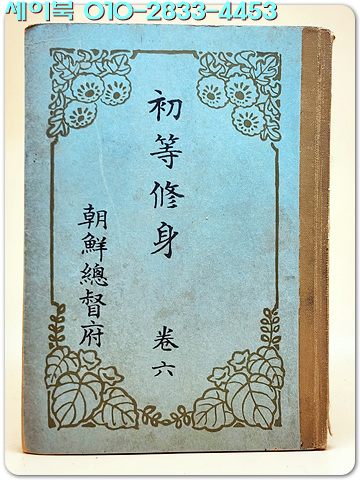 세이북 010-2833-4453
初等修身
卷六
朝鮮總督府